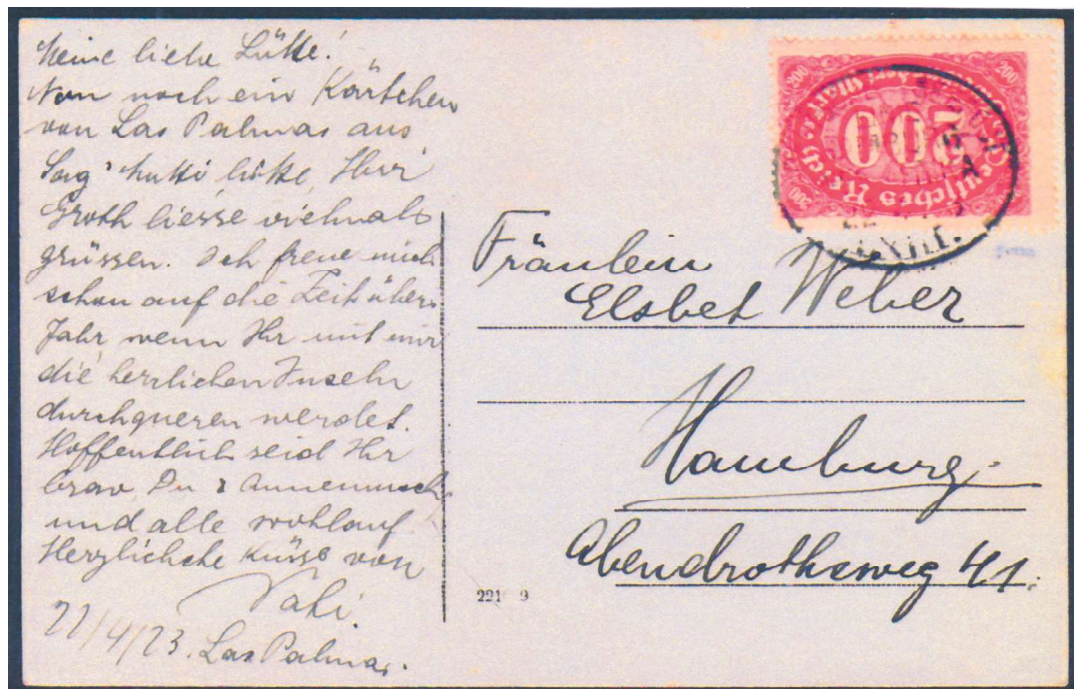 Meine liebe Lütte!
Nun noch ein Kärtchen
von Las Palmas aus
Sag' Mutti bitte, Herr
Groth liesse vielmals
grüssen. Ich freue mich
schon auf die Zeit übers
Jahr, wenn Ihr mit mir
die herrlichen Inseln
durchqueren werdet.
Hoffentlich seid Ihr
brav, Du & Annemusch
und alle wohlauf
Herzlichste Küsse von
Vati.
22/4/23. Las Palmas.
200
200
Deutsches Reich
200
Fräulein
Elsbet Weber
Hamburg.
Abendrothsweg 41.